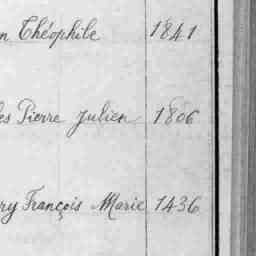 n Théophile 1841
es Pierre Julien 1806
ry François Marie 1436